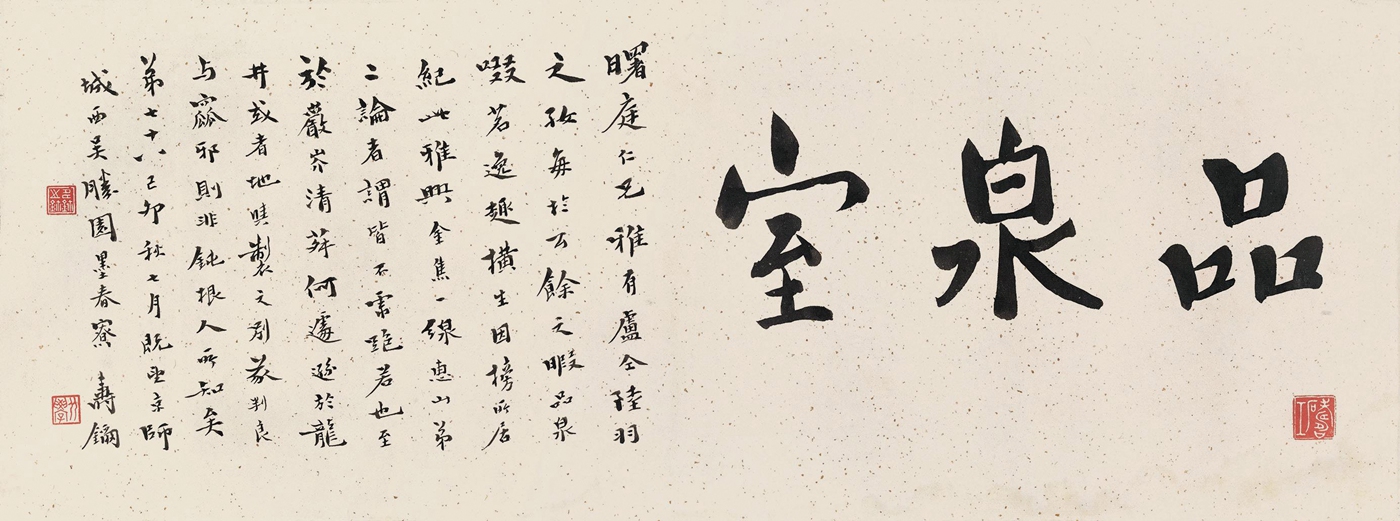 品泉室
曙庭仁兄雅有盧仝陸羽
之致每於公餘之暇品泉
啜茗逸趣橫生因榜所居
紀此雅興金焦一線惠山弟
二論者謂皆不虛，若也至
於巖岑清𣲖何遽遜於龍
井或者地與製之別歟判良
与窳邪則非鈍根人所知矣
弟七十八己卯秋七月既望京師
城西吴勝園墨春寮壽鏞